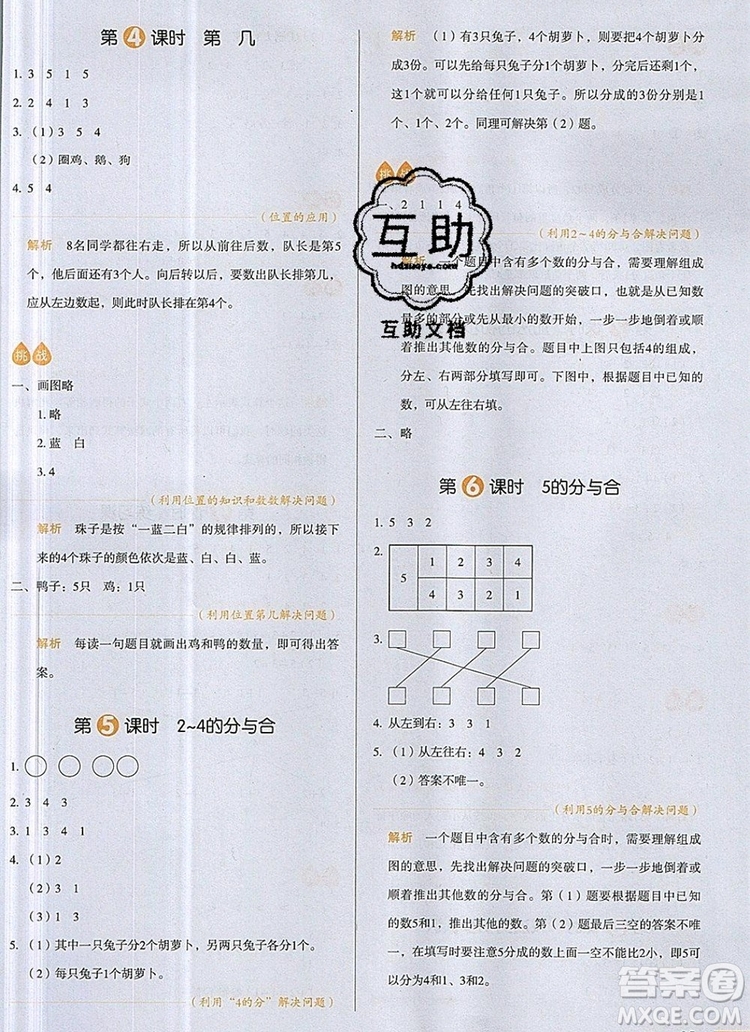 第4课时 第 几
1. 3 5 1 5
2. 2 4 1 3
3. (1) 3 5 4
(2) 圈鸡、鹅、狗
4. 5 4
(位置的应用)
解析 8名同学都往右走，所以从前往后数，队长是第5
个，他后面还有3个人。向后转以后，要数出队长排第几，
应从左边数起，则此时队长排在第4个。
挑战
一、画图略
1. 略
2. 蓝 白
3. 4
(利用位置的知识和数数解决问题)
解析 珠子是按“一蓝二白”的规律排列的，所以接下
来的4个珠子的颜色依次是蓝、白、白、蓝。
二、鸭子：5只 鸡：1只
(利用位置第几解决问题)
解析 每读一句题目就画出鸡和鸭的数量，即可得出答
案。
第5课时 2~4的分与合
1.
2. 3 4 3
3. 1 3 1
4. (1) 2
(2) 3 1
(3) 1 3
5. (1) 其中一只兔子分2个胡萝卜，另两只兔子分1个。
(2) 每只兔子1个胡萝卜。
(利用“4的分”解决问题)
解析 (1) 有3只兔子，4个胡萝卜，即把4个胡萝卜分
成3份。可以先给每只兔子分1个胡萝卜，分完后还剩1
个，这1个可以分给任何1只兔子。所以分成的3份分别是
1个、1个、2个。同理可解决第(2)题。
挑战
一、2 1 1 4
(利用2~4的分与合解决问题)
解析 一个题目中含有多个数的分与合，需要理解组成
图的意思，先找出解决问题的突破口，可以从已知的数
量多的部分或先从最小的数开始，一步一步地按顺序接
着推出其他数的分与合。题目中上图只包括4的组成，
分左、右两部分填写即可。下图，根据题目中已知的
数，可从左往右填。
二、略
第6课时 5的分与合
1. 5 3 2
2.
5 1 2 3 4
4 3 2 1
3.
4. 从左到右：3 3 1
5. (1) 从左往右：4 3 2
(2) 答案不唯一。
(利用5的分与合解决问题)
解析 一个题目中含有多个数的分与合时，需要理解组成
图的意思，先找出解决问题的突破口，一步一步地按
顺序接着推出其他数的分与合。第(1)题可以根据已知的
数5和1，按顺序填写。第(2)题最后三空的答案不唯
一，在填写时要注意5分成的数上面一空不能比2小，即5可
以分为4和1、3和2。
互助
hdzuoye.com
互助文档
答案圈
MXQE.COM